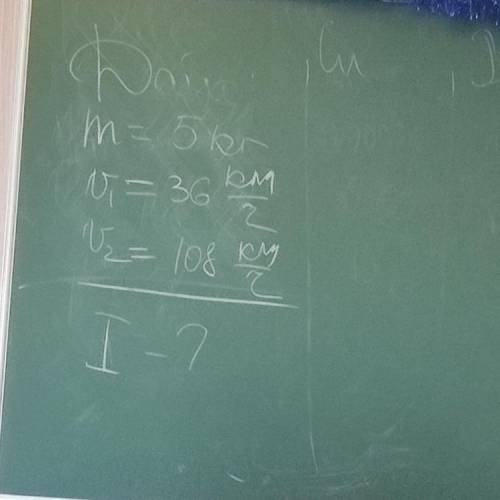 Дано: Си
m = 5 кг
v₁ = 36 км/ч
v₂ = 108 км/ч
I - ?